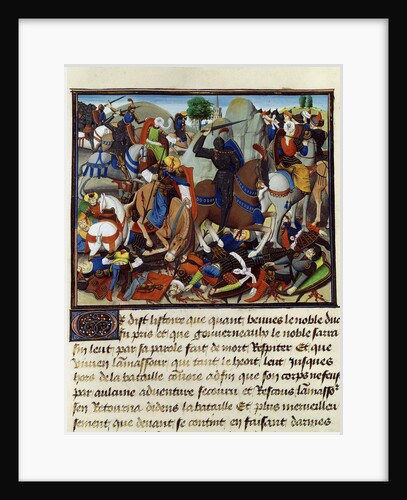 Or dist listoire que quant beuves le noble duc
fu pris et que gouvernault le noble sarra
sin leut par sa parole fait de mort Respiter Et que
vivien lamassour qui tant le heoit leut jusques
hors de la bataille convoie adfin que son corps ne feust
par aulcune adventure secouru et Rescous lamassor
sen Retourna dedens la bataille Et plus merveilleu
sement que devant se contint en faisant darmes